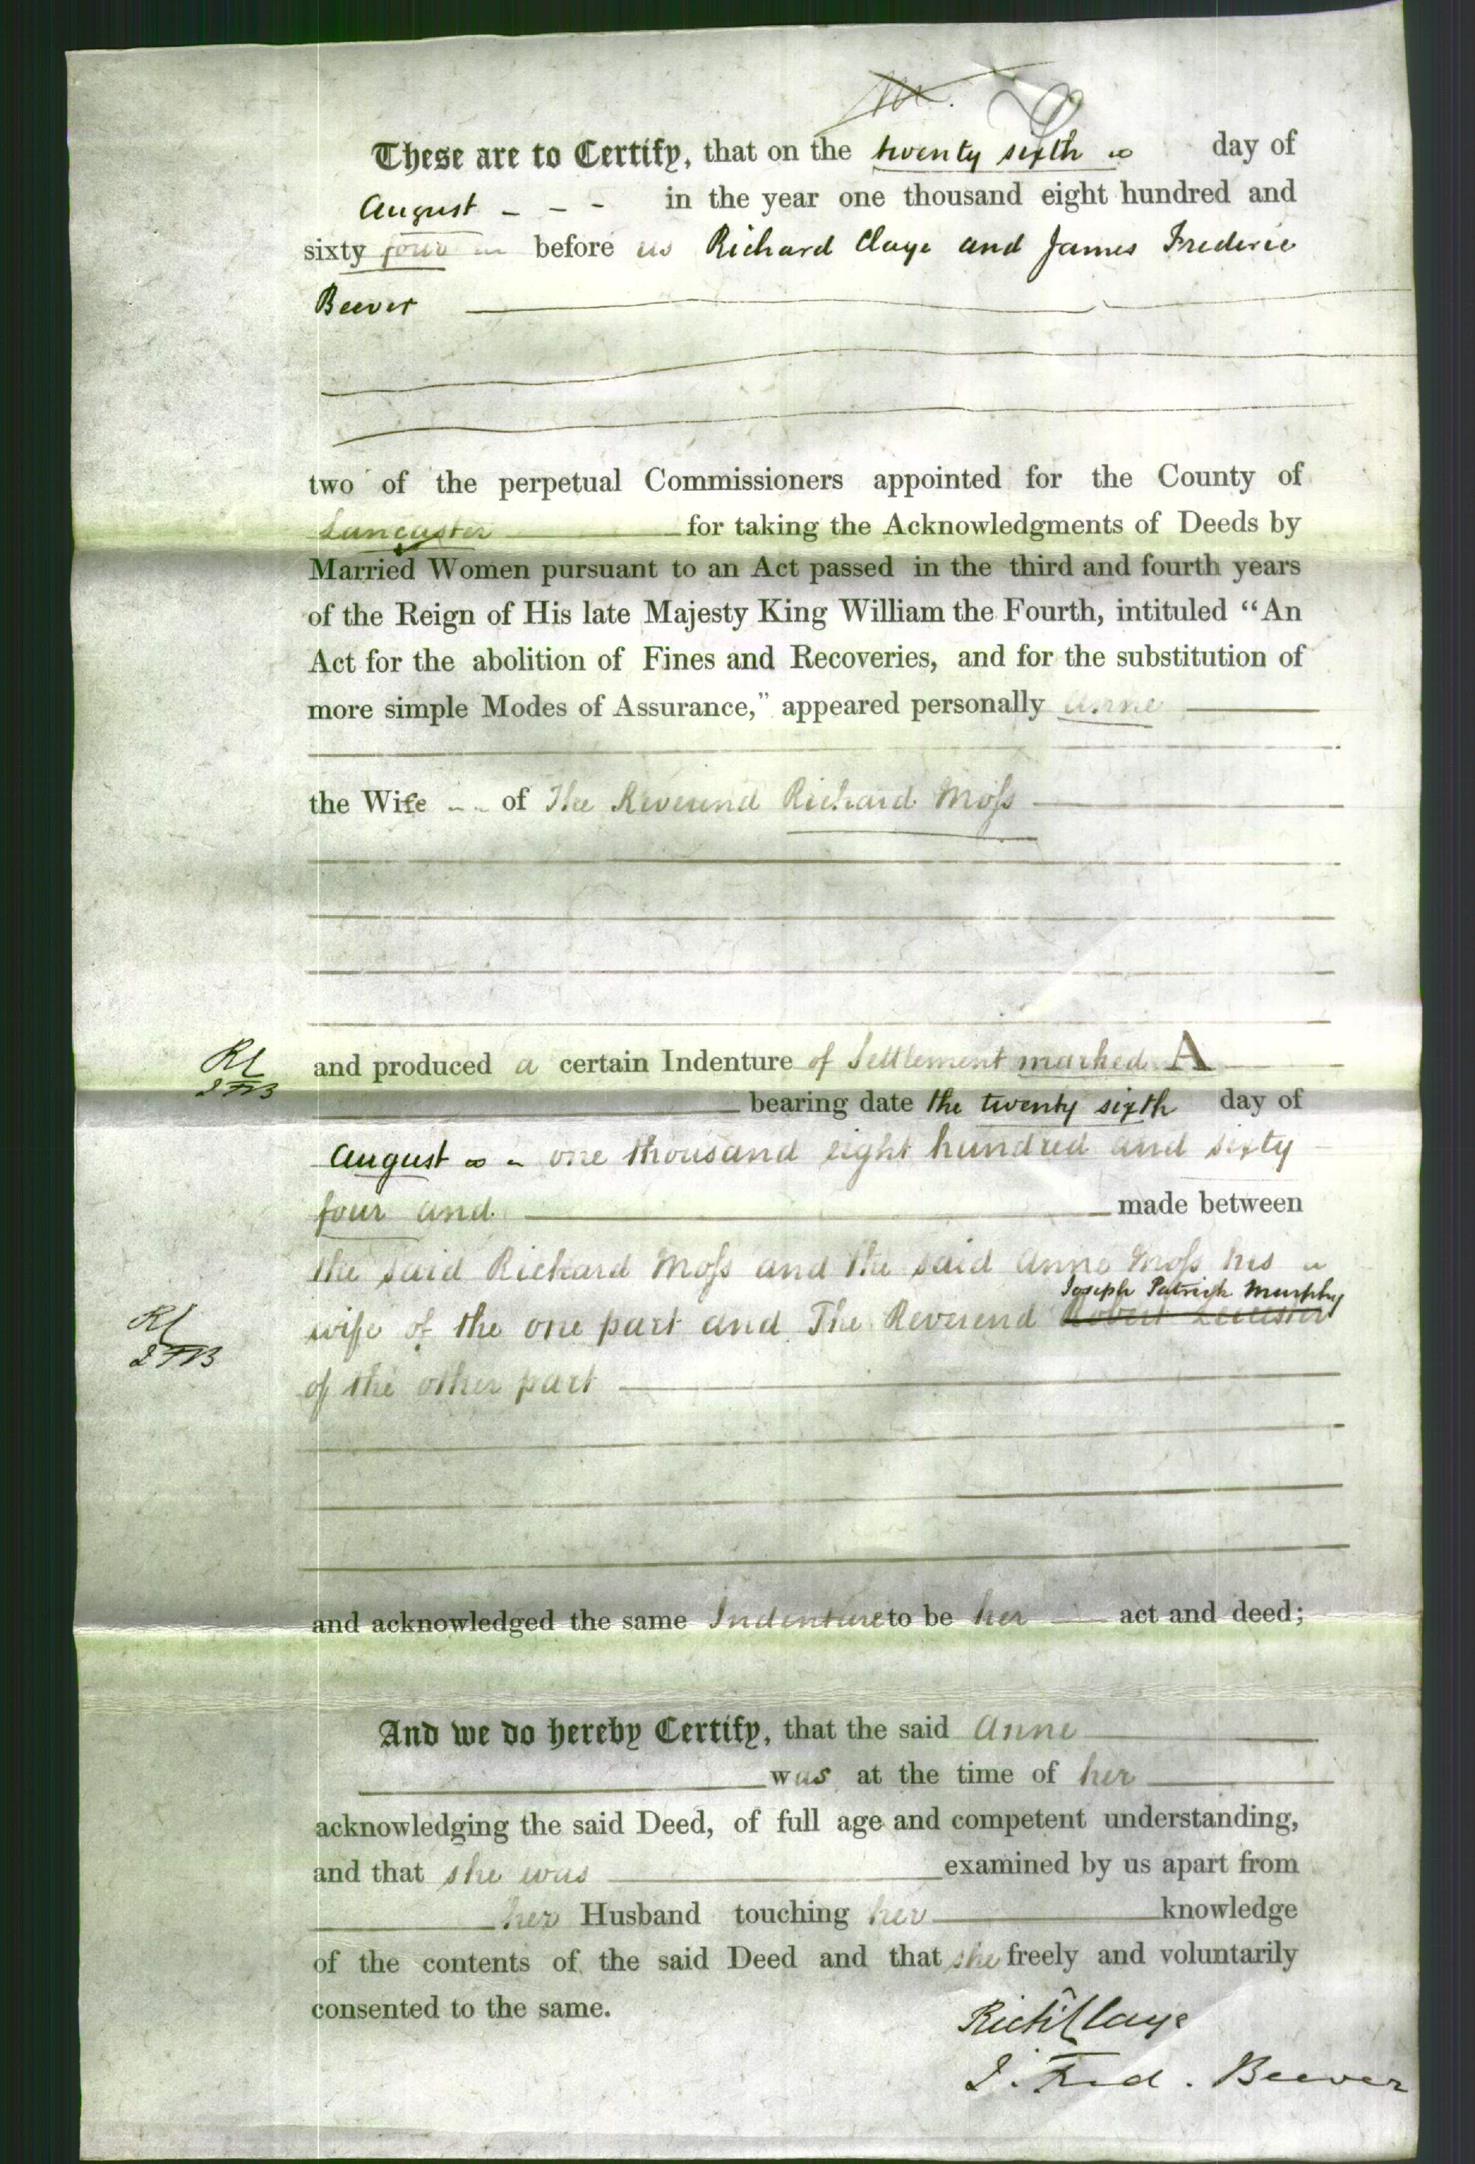 These are to Certify, that on the twenty sixth day of
August - - - in the year one thousand eight hundred and
sixty four before us Richard Claye and James Frederic
Beever
two of the perpetual Commissioners appointed for the County of
Lancaster for taking the Acknowledgments of Deeds by
Married Women pursuant to an Act passed in the third and fourth years
of the Reign of His late Majesty King William the Fourth, intituled “An
Act for the abolition of Fines and Recoveries, and for the substitution of
more simple Modes of Assurance,” appeared personally Anne
the Wife - - of The Reverend Richard Moss
RC and produced a certain Indenture of Settlement marked A
JFB bearing date the twenty sixth day of
August one thousand eight hundred and sixty
four and made between
the said Richard Moss and the said Anne Moss his
Joseph Patrick Murphy
RC wife of the one part and The Reverend Robert Leicester
JFB
of the other part
and acknowledged the same Indenture to be her act and deed;
And we do hereby Certify, that the said Anne
was at the time of her
acknowledging the said Deed, of full age and competent understanding,
and that she was examined by us apart from
her Husband touching her knowledge
of the contents of the said Deed and that she freely and voluntarily
consented to the same.
Richd Claye
J. Fred. Beever